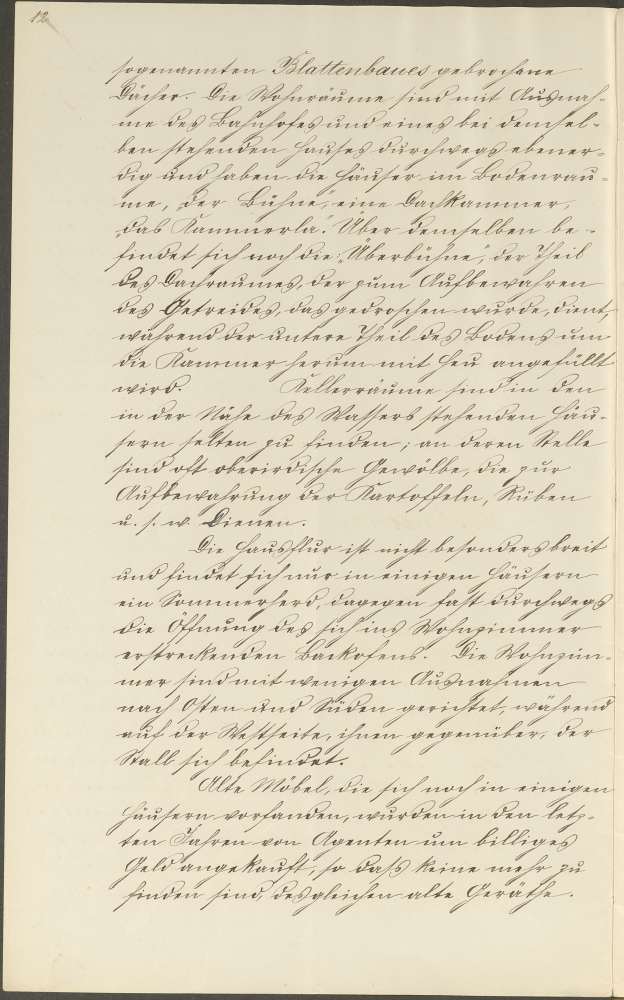 12
sogenannten Blattenbaues gebrochene
Dächer. Die Wohnräume sind mit Ausnah-
me des Bahnhofes und eines bei demsel-
ben stehenden Hauses durchwegs ebener-
dig und haben die Häuser im Bodenrau-
me, „der Bühne“, eine Dachkammer,
„das Kammerla“. Über demselben be-
findet sich noch die „Überbühne“, der Theil
des Dachraumes, der zum Aufbewahren
des Getreides, das gedroschen wurde, dient,
während der untere Theil des Bodens um
die Kammer herum mit Heu angefüllt
wird. Kellerräume sind in den
in der Nähe des Wassers stehenden Häu-
sern selten zu finden; an deren Stelle
sind oft oberirdische Gewölbe, die zur
Aufbewahrung der Kartoffeln, Rüben
u. s. w. dienen.
Die Hausflur ist nicht besonders breit
und findet sich nur in einigen Häusern
ein Sommerherd, dagegen fast durchwegs
die Öffnung des sich ins Wohnzimmer
erstreckenden Backofens. Die Wohnzim-
mer sind mit wenigen Ausnahmen
nach Osten und Süden gerichtet, während
auf der Westseite, ihnen gegenüber, der
Stall sich befindet.
Alte Möbel, die sich noch in einigen
Häusern vorfanden, wurden in den letz-
ten Jahren von Agenten um billiges
Geld angekauft, so dass keine mehr zu
finden sind, desgleichen alte Geräthe.